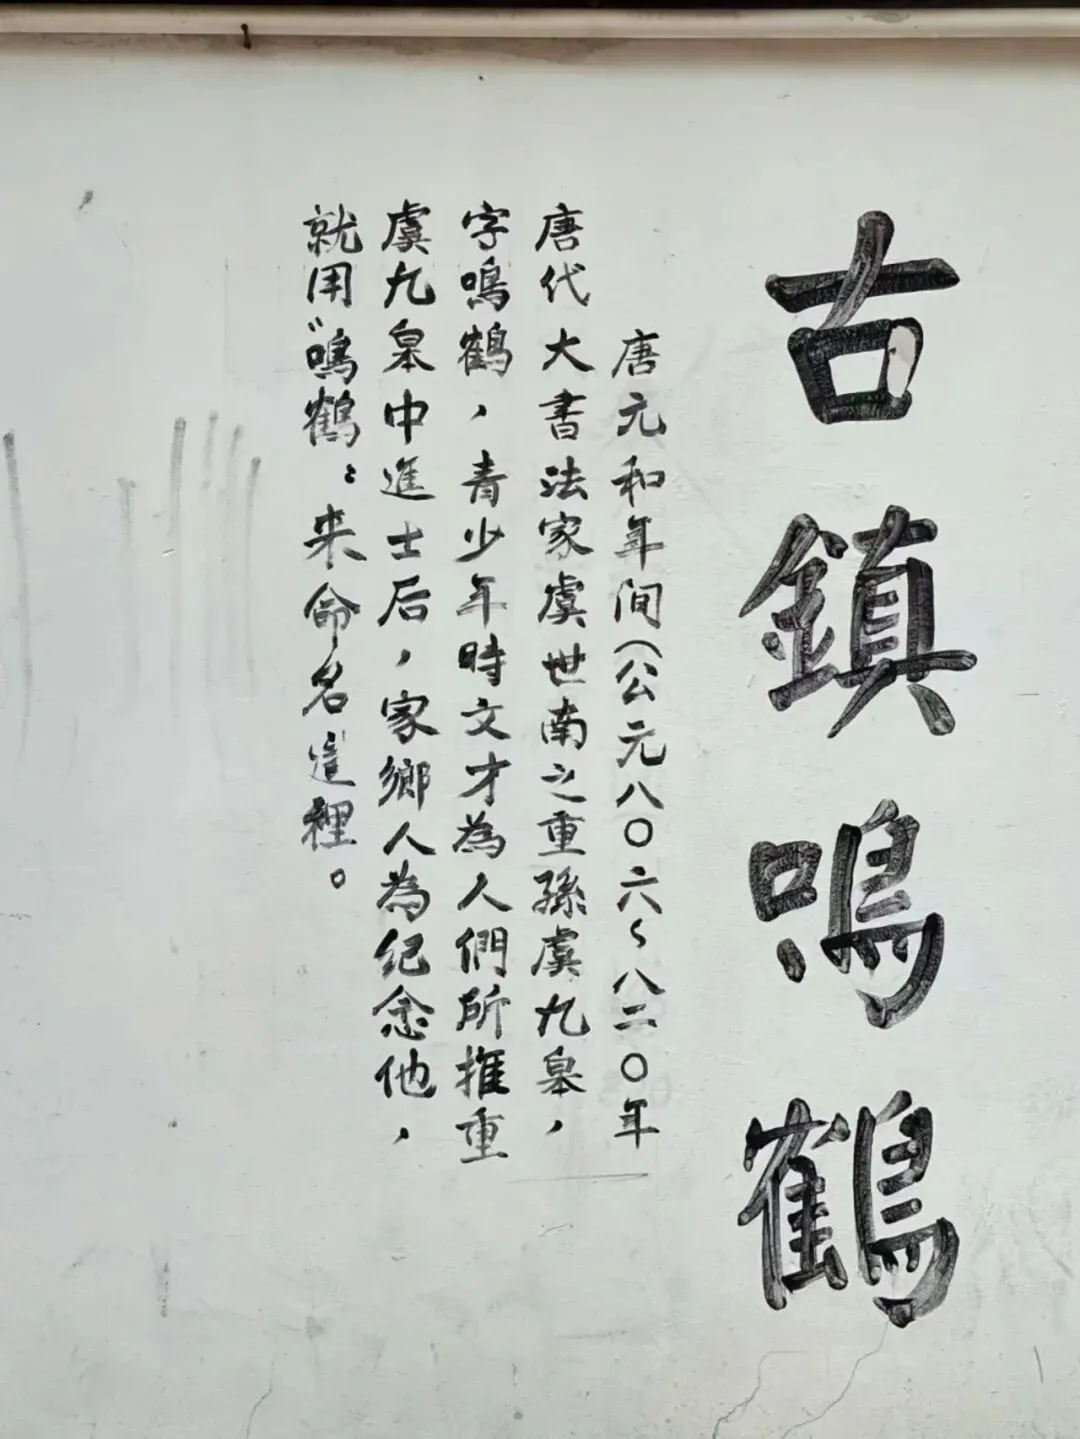 古鎮鳴鶴
唐元和年间(公元八〇六~八二〇年
唐代大書法家虞世南之重孫虞九皋,
字鳴鶴,青少年時文才為人們所推重
虞九皋中進士后,家鄉人為纪念他,
就用"鳴鶴"来命名這裡。